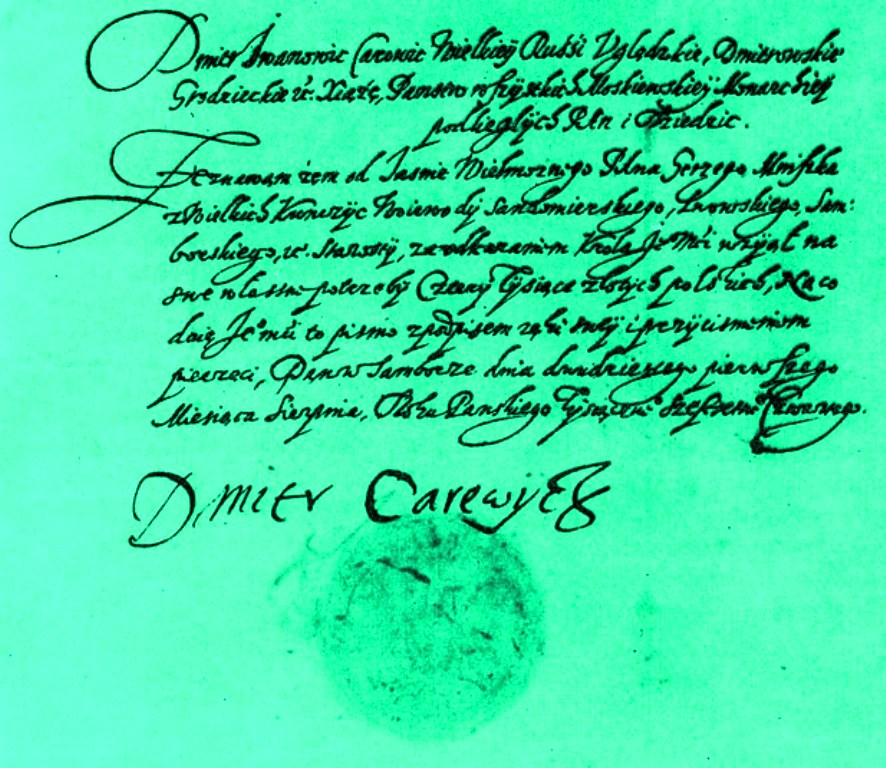 Dmitr Iwanowic Carowic Wielkiey Russi Vglèdzkie, Dmitrowskie
Grodzieckie &c. Xiążę, Panstw wszystkich Moskiewskiey Monarchiey
podległych Pan i Dziedzic.
Zeznawam żem od Jasnie Wielmożnego Pana Gerzego Mniszka
z Wielkich Kunczyc Woiewody Sandomierskiego, Lwowskiego, Sam:
borskiego, &c. Starosty, za wkazaniem Krola Je Mći wziął na
swe własne potrzeby Cztery Tysiące złotych polskich, Na co
daię Je° mći to pismo z podpisem ręki swey i przycisnieniem
pieczęci, Dan w Samborze dnia dwudziestego pierwszego
Miesiąca Sierpnia, Roku Panskiego Tysiącne° Szescsetne° Czwartego.
Dmitr Carewycz